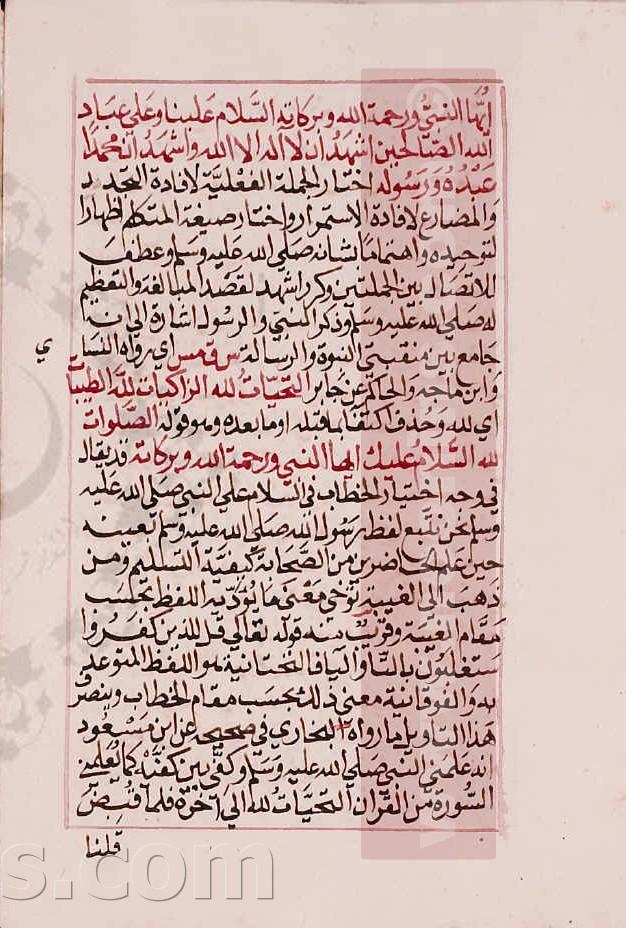 ايُّها النبيُّ ورحمة الله وبركاته السَّلام علينا وعلى عباد
الله الصَّالحين اشهدُ ان لا اله الا الله واشهدُ ان محمدًا
عَبْدُهُ وَرَسُوله اختار الجملة الفعْليَّة لافادة التجدد
والمضارع لافادة الاستمرار واختار صيغة المتكلم اظهارا
لتوحيده واهتمامًا بشانه صَلى الله عليه وسَلم وعطفَ
للاتصال بين الجملتين وكرر اشهد لقصْد المبالغة والتعظيم
له صَلى الله عليه وسَلم وذكر النبيّ والرسول اشارة الى انه
جامع بين منقبتي النبوة والرسالة س ق مس اي رواه النساي
وابن ماجه والحاكم عن جابر التحيّات لله الزاكيات للّه الطيبات
اي لله وَحُذف اكتفا بما قبله او ما بعده وهو قوله الصَّلوات
لله السَّلامُ عليك ايها النبي ورحمة الله وبركاته قد يقال
في وجه اختيار الخطاب في السلام على النبي صلى الله عليه
وسلم نحن نتّبع لفظ رسُول الله صلى الله عليه وسلم بعينه
حين علم الحاضرين من الصَّحابة كيفيّة التسليم ومن
ذهبَ الى الغيبة توَخى مَعْنى ما يُؤدّيه اللفظ بحسب
مقام الغيبة وقريبٌ منه قوله تعالى قل للذين كفرُوا
ستغلبُون بالتا واليا فالتحتانية هو اللفظ المتوعد
به والفوقانية معنى ذلك بحسب مقام الخطاب وينصرُ
هذا التاويل ما رواه البخاري في صحيحه عن ابن مسْعُود
انه علمني النبي صَلى الله عليه وسَلم وكفّي بين كفّيْه كما يُعلمني
السُّورة من القرآن التحيّات لله الى آخره فلما قُبِضَ
قلنا
s.com